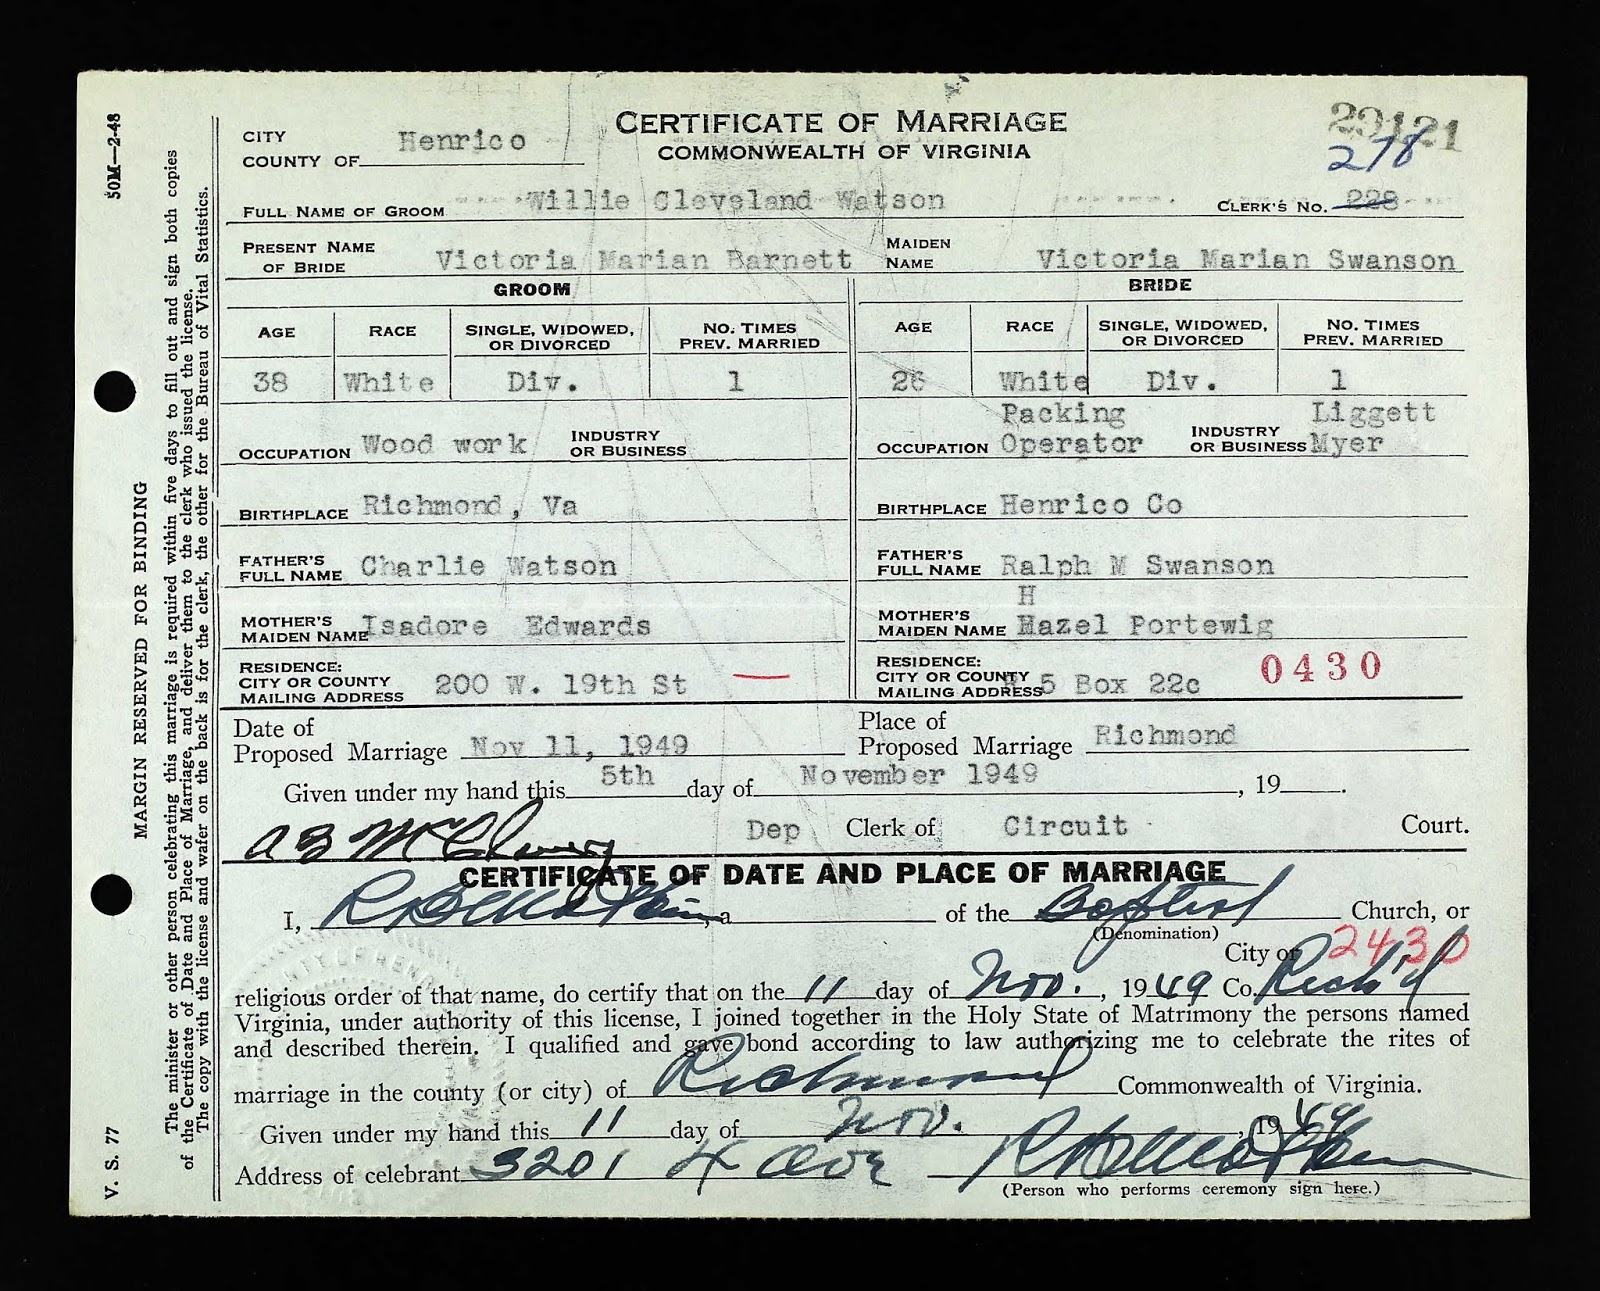 50M—2-48
MARGIN RESERVED FOR BINDING
V. S. 77
The minister or other person celebrating this marriage is required within five days to fill out and sign both copies
of the Certificate of Date and Place of Marriage, and deliver them to the clerk who issued the license.
The copy with the license and wafer on the back is for the clerk, the other for the Bureau of Vital Statistics.
CERTIFICATE OF MARRIAGE
COMMONWEALTH OF VIRGINIA
29121
278
CITY
COUNTY OF Henrico
FULL NAME OF GROOM Willie Cleveland Watson CLERK'S NO. 228
PRESENT NAME OF BRIDE Victoria Marian Barnett MAIDEN NAME Victoria Marian Swanson
GROOM BRIDE
AGE RACE SINGLE, WIDOWED, OR DIVORCED NO. TIMES PREV. MARRIED AGE RACE SINGLE, WIDOWED, OR DIVORCED NO. TIMES PREV. MARRIED
38 White Div. 1 26 White Div. 1
OCCUPATION Wood work INDUSTRY OR BUSINESS OCCUPATION Packing Operator INDUSTRY OR BUSINESS Liggett Myer
BIRTHPLACE Richmond, Va BIRTHPLACE Henrico Co
FATHER'S FULL NAME Charlie Watson FATHER'S FULL NAME Ralph M Swanson
H
MOTHER'S MAIDEN NAME Isadore Edwards MOTHER'S MAIDEN NAME Hazel Portewig
RESIDENCE: CITY OR COUNTY MAILING ADDRESS 200 W. 19th St — RESIDENCE: CITY OR COUNTY MAILING ADDRESS R 5 Box 22c 0430
Date of Proposed Marriage Nov 11, 1949 Place of Proposed Marriage Richmond
Given under my hand this 5th day of November 1949, 19 .
Dep Clerk of Circuit Court.
CERTIFICATE OF DATE AND PLACE OF MARRIAGE
I, , a of the Baptist Church, or
(Denomination)
City or 2430
religious order of that name, do certify that on the 11 day of Nov., 1949 Co. Rich'd
Virginia, under authority of this license, I joined together in the Holy State of Matrimony the persons named
and described therein. I qualified and gave bond according to law authorizing me to celebrate the rites of
marriage in the county (or city) of Richmond Commonwealth of Virginia.
Given under my hand this 11 day of Nov., 1949
Address of celebrant 3201 4 Ave
(Person who performs ceremony sign here.)